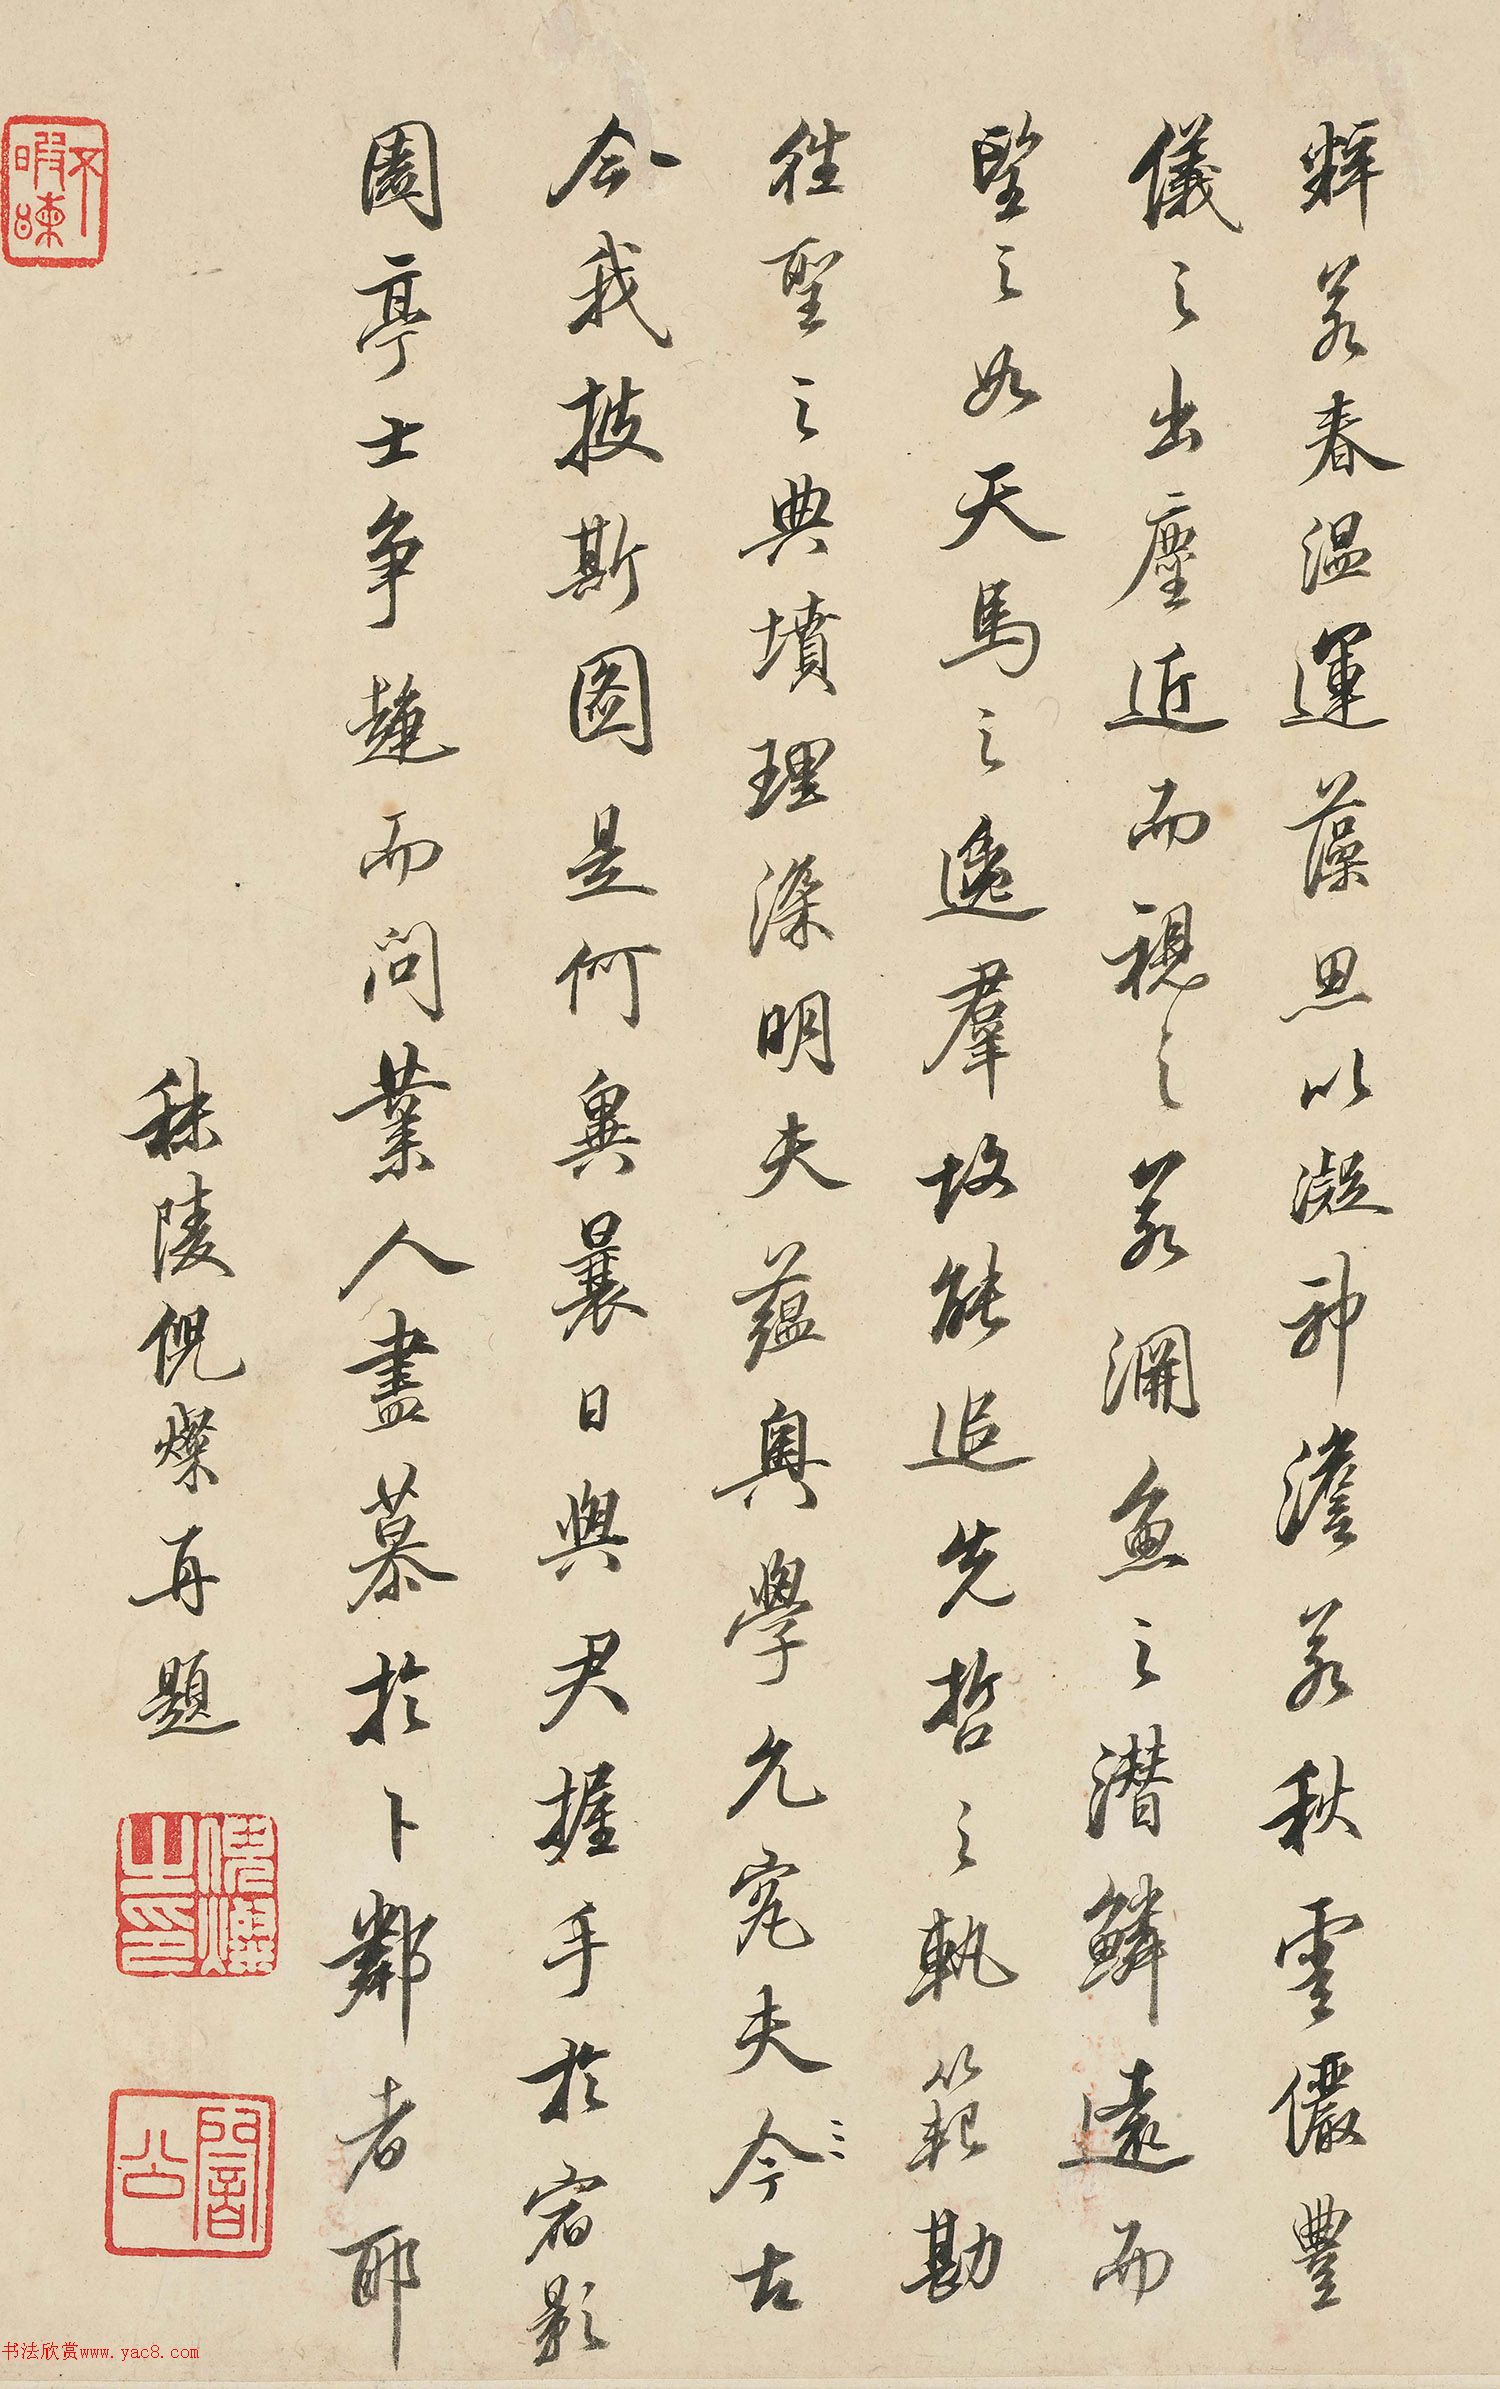 粹若春温運藻思以凝神澹若秋雲儼豐
儀之出塵近而視之若淵魚之潛鱗遠而
望之如天馬之逸羣故能追先哲之軌範勘
往聖之典墳理深明夫蘊奥學允究夫今古
今我披斯圖是何異曩日與君握手於宿影
園亭士争趨而問業人盡慕於卜鄰者耶
秣陵倪燦再題
倪燦之印
闇公
不暇懶
书法欣赏www.yac8.com